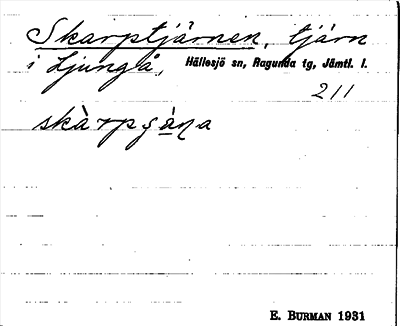 Skarptjärnen, tjärn
i Ljungå, Hällesjö sn, Ragunda tg, Jämtl. l.
211
E. BURMAN 1931